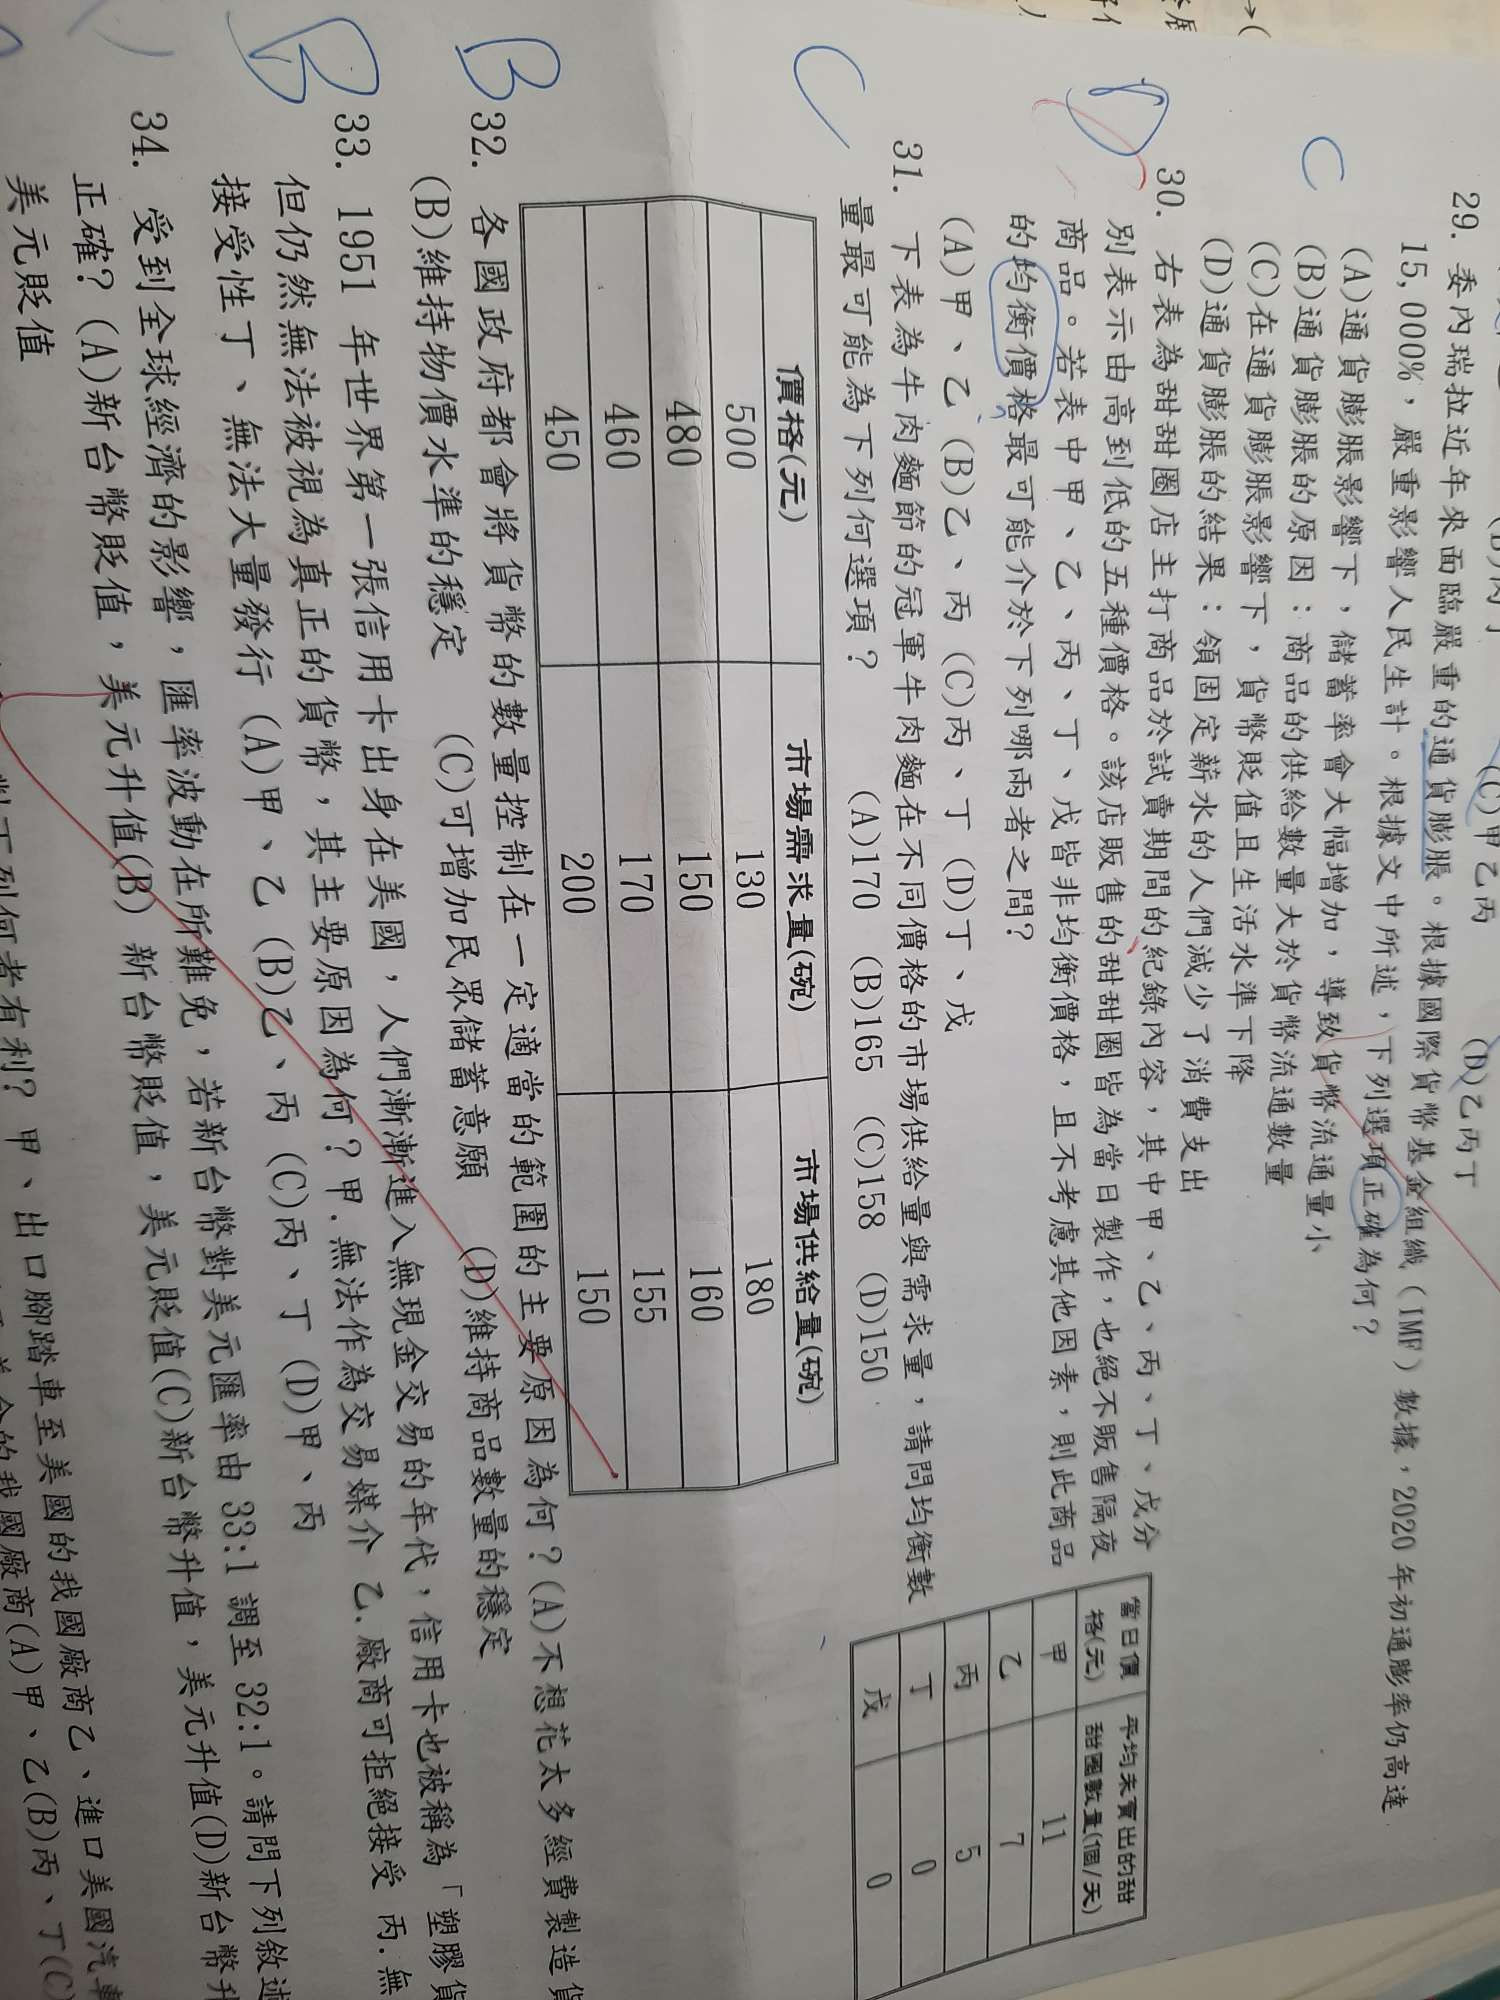 (D)丙丁 (C)甲乙丙 (D)乙丙丁
C
29. 委內瑞拉近年來面臨嚴重的通貨膨脹。根據國際貨幣基金組織(IMF)數據,2020 年初通膨率仍高達
15,000%,嚴重影響人民生計。根據文中所述,下列選項正確為何?
(A)通貨膨脹影響下,儲蓄率會大幅增加,導致貨幣流通量小
(B)通貨膨脹的原因:商品的供給數量大於貨幣流通數量
(C)在通貨膨脹影響下,貨幣貶值且生活水準下降
(D)通貨膨脹的結果:領固定薪水的人們減少了消費支出
30. 右表為甜甜圈店主打商品於試賣期間的紀錄內容,其中甲、乙、丙、丁、戊分
別表示由高到低的五種價格。該店販售的甜甜圈皆為當日製作,也絕不販售隔夜
商品。若表中甲、乙、丙、丁、戊皆非均衡價格,且不考慮其他因素,則此商品
的均衡價格最可能介於下列哪兩者之間?
(A)甲、乙 (B)乙、丙 (C)丙、丁 (D)丁、戊
當日價格(元) 平均未賣出的甜甜圈數量(個/天)
甲 11
乙 7
丙 5
丁 0
戊 0
C
31. 下表為牛肉麵節的冠軍牛肉麵在不同價格的市場供給量與需求量,請問均衡數
量最可能為下列何選項? (A)170 (B)165 (C)158 (D)150
價格(元) 市場需求量(碗) 市場供給量(碗)
500 130 180
480 150 160
460 170 155
450 200 150
B
32. 各國政府都會將貨幣的數量控制在一定適當的範圍的主要原因為何?(A)不想花太多經費製造貨
(B)維持物價水準的穩定 (C)可增加民眾儲蓄意願 (D)維持商品數量的穩定
B
33. 1951 年世界第一張信用卡出身在美國,人們漸漸進入無現金交易的年代,信用卡也被稱為「塑膠貨
但仍然無法被視為真正的貨幣,其主要原因為何?甲.無法作為交易媒介 乙.廠商可拒絕接受 丙.無
接受性丁、無法大量發行 (A)甲、乙 (B)乙、丙 (C)丙、丁 (D)甲、丙
34. 受到全球經濟的影響,匯率波動在所難免,若新台幣對美元匯率由 33:1 調至 32:1。請問下列敘述
正確?(A)新台幣貶值,美元升值(B) 新台幣貶值,美元貶值(C)新台幣升值,美元升值(D)新台幣升
美元貶值
對下列何者有利? 甲、出口腳踏車至美國的我國廠商乙、進口美國汽車
的我國廠商(A)甲、乙(B)丙、丁(C)